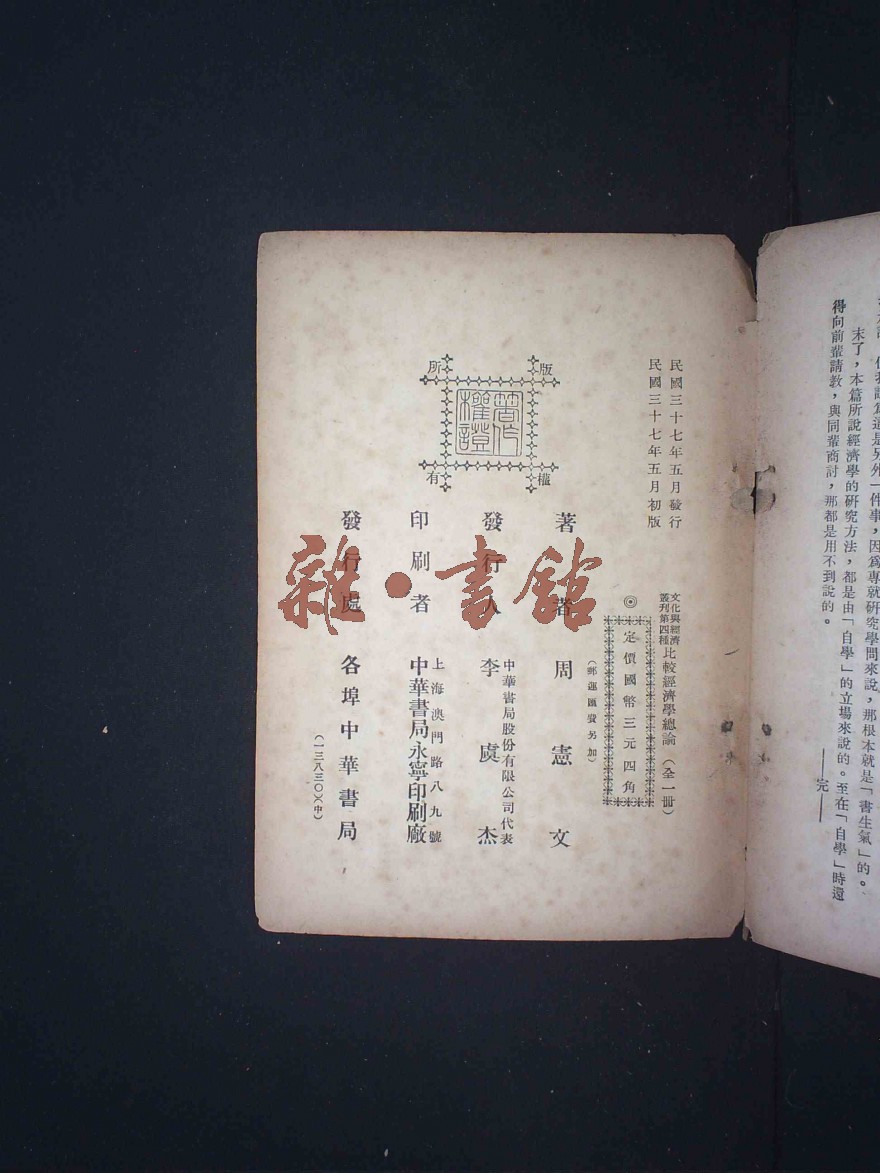 末了，本篇所說經濟學的研究方法，都是由「自學」的立場來說的。至在「自學」時還
得向前輩請教，與同輩商討，那都是用不到說的。
——完——
民國三十七年五月發行
民國三十七年五月初版
文化與經濟
叢刊第四種
比較經濟學總論（全一冊）
◎定價國幣三元四角
（郵運匯費另加）
版權所有
著作權證
著者 周憲文
發行人 中華書局股份有限公司代表
李虞杰
印刷者 上海澳門路八九號
中華書局永寧印刷廠
發行處 各埠中華書局
（一三八三〇）（中）
雜·書館